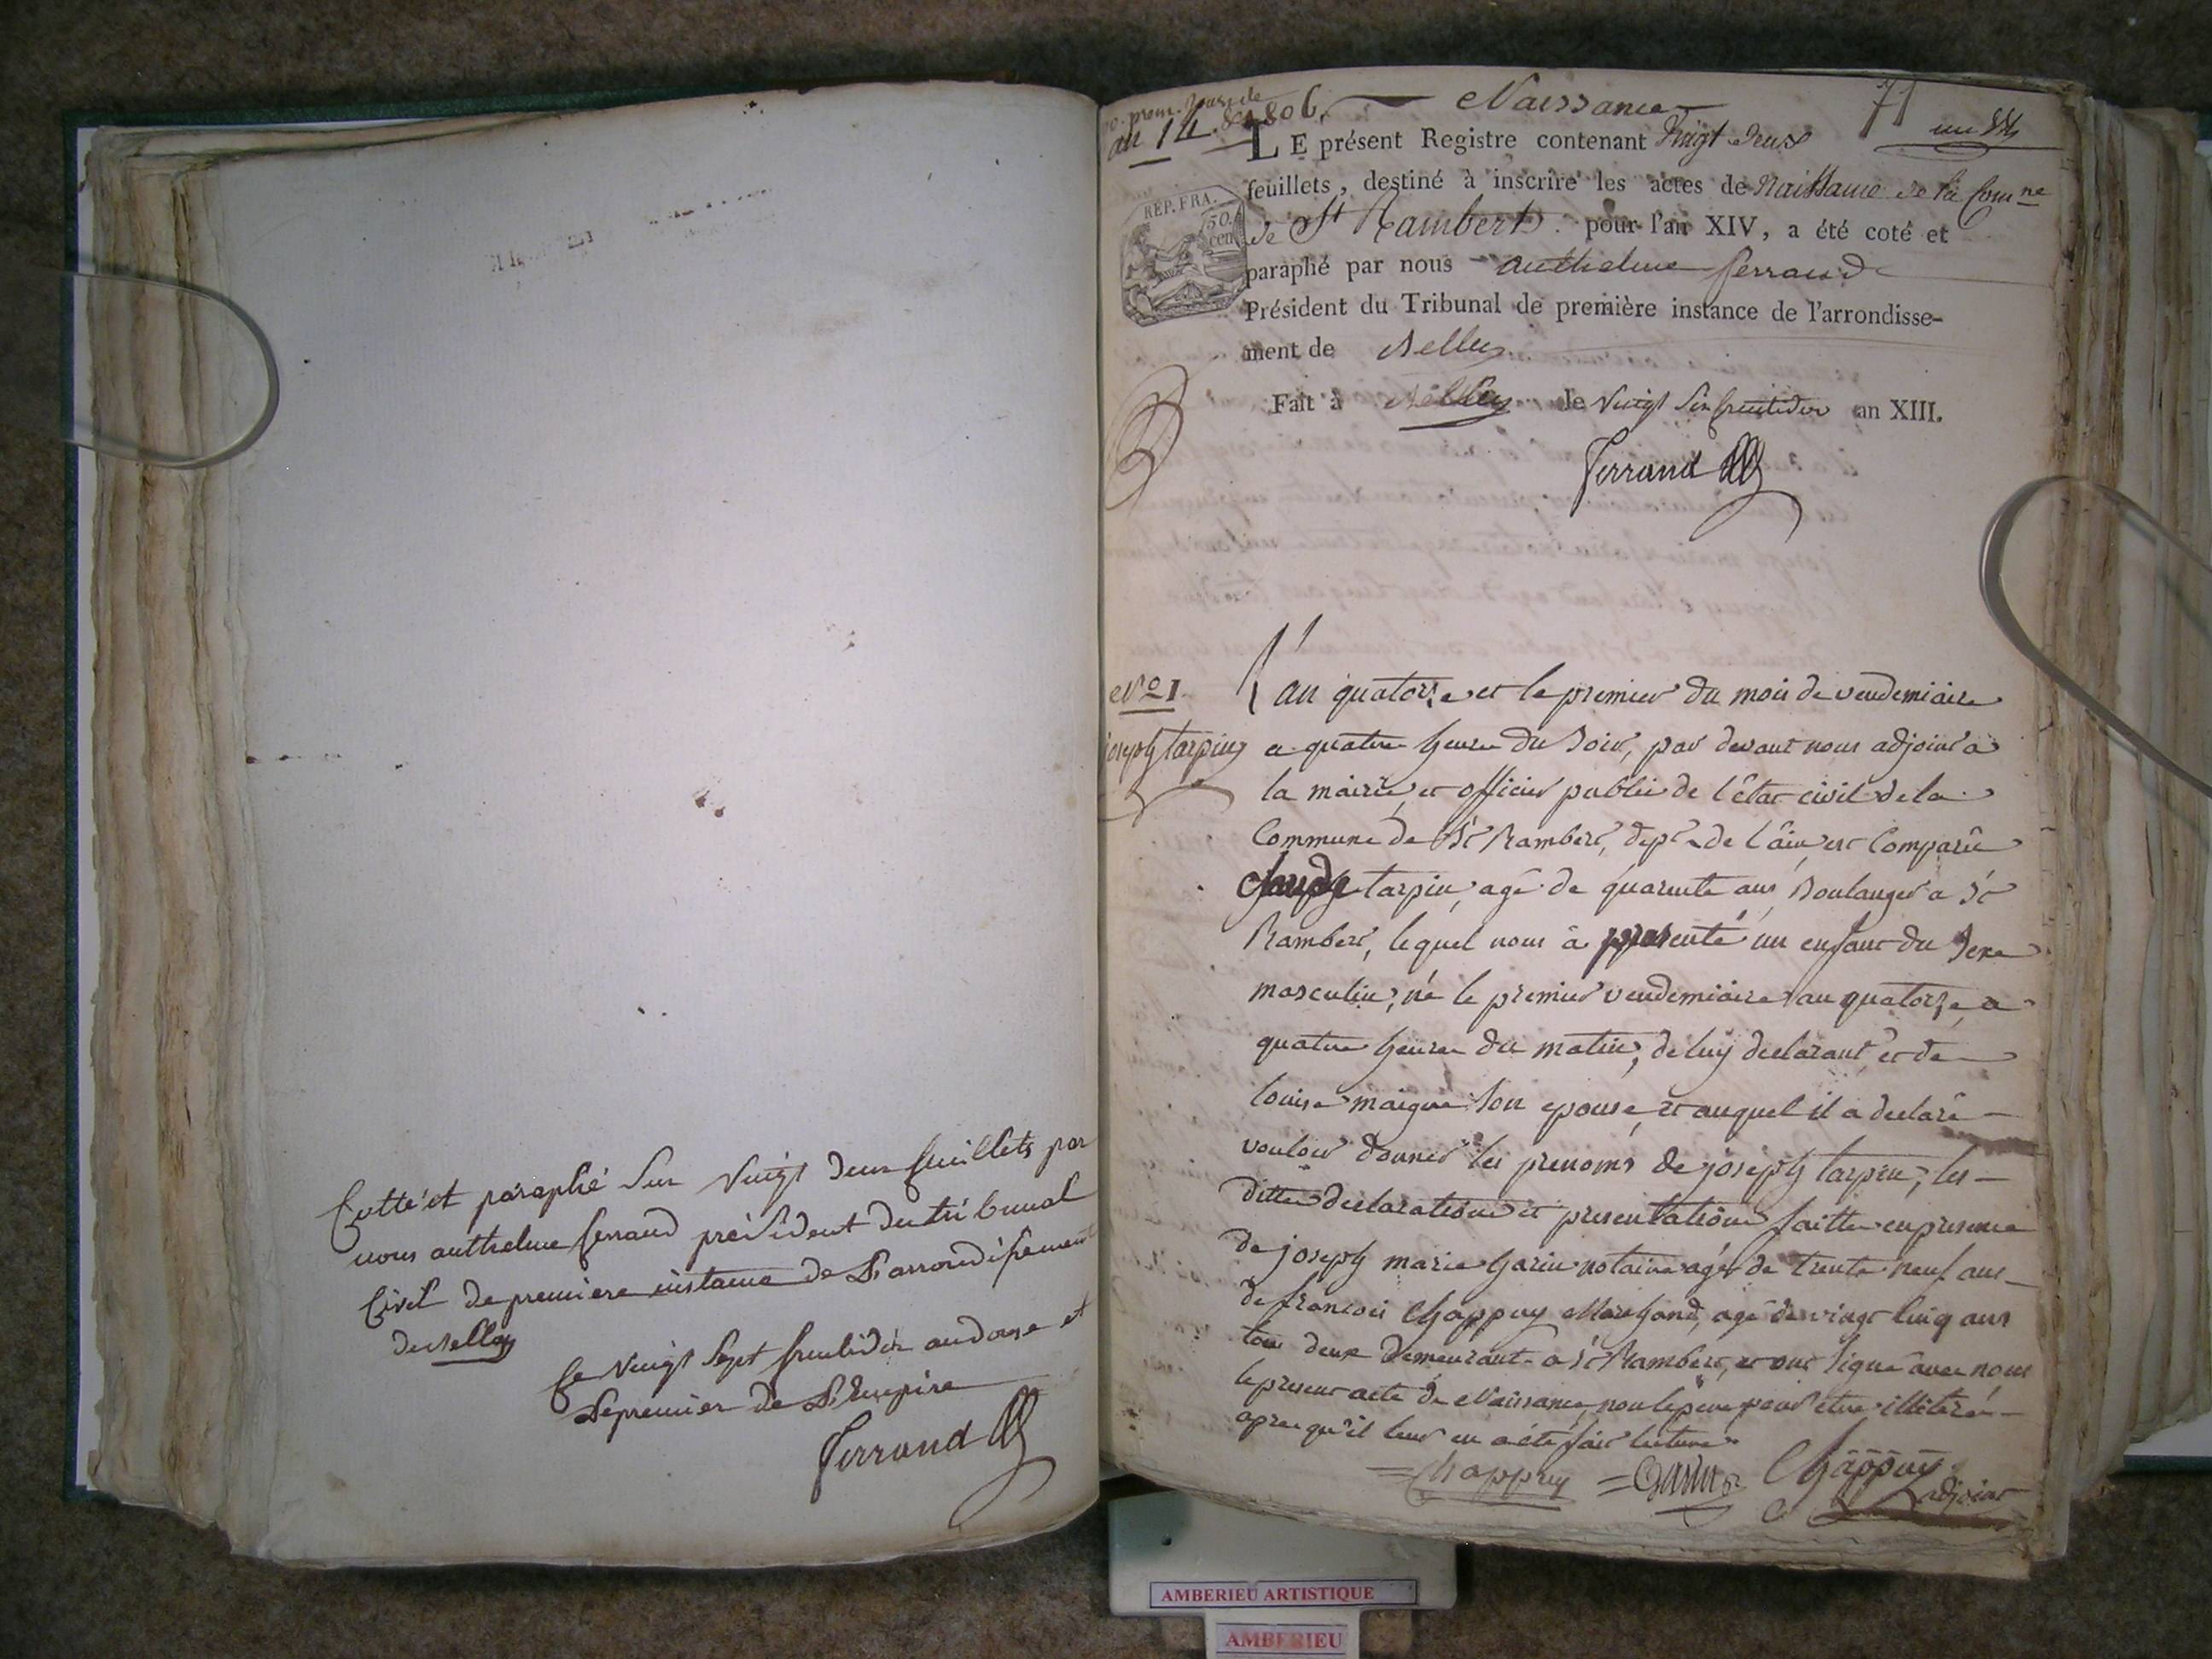 Cotté et paraphé Sur Vingt deux feuillets par
nous anthelme ferrand président du tribunal
Civil de premiere instance de L'arrondissement
de Belley
Ce Vingt Sept fructidor an douze et
Le premier de L'Empire
Ferrand
an 14. & 1806. Naissance 71
LE présent Registre contenant Vingt deux
feuillets, destiné à inscrire les actes de Naissance de la Comne
de St Rambert pour l'an XIV, a été coté et
paraphé par nous anthelme ferrand
Président du Tribunal de première instance de l'arrondisse-
ment de Belley
Fait à Belley le Vingt Six fructidor an XIII.
Ferrand
REP. FRA.
50.
cen
No 1.
joseph tarpin
L'an quatorze et le premier du mois de vendemiaire
a quatre heures du Soir, par devant nous adjoint a
la mairie, et officier public de l'état civil de la
Commune de St Rambert, dept de l'ain, est Comparû
Claude tarpin, agé de quarante ans, Boulanger a St
Rambert, lequel nous à presenté un enfant du Sexe
masculin, né le premier vendemiaire an quatorze, a
quatre heures du matin, de luy declarant et de
louise maigre Son epouse, et auquel il a declaré
vouloir donner les prenoms de joseph tarpin, les
dittes declaration et presentation faitte en presence
de joseph marie Garin notaire agé de trente neuf ans
de francois Chappuy Marchand, agé de vingt Cinq ans
tous deux demeurant a St Rambert, et ont Signé avec nous
le present acte de Naissance, non le pere pour etre illiteré
apres qu'il leur en a été fait lecture
Chappuy Garin Chappuy
adjoint
AMBERIEU ARTISTIQUE
AMBERIEU